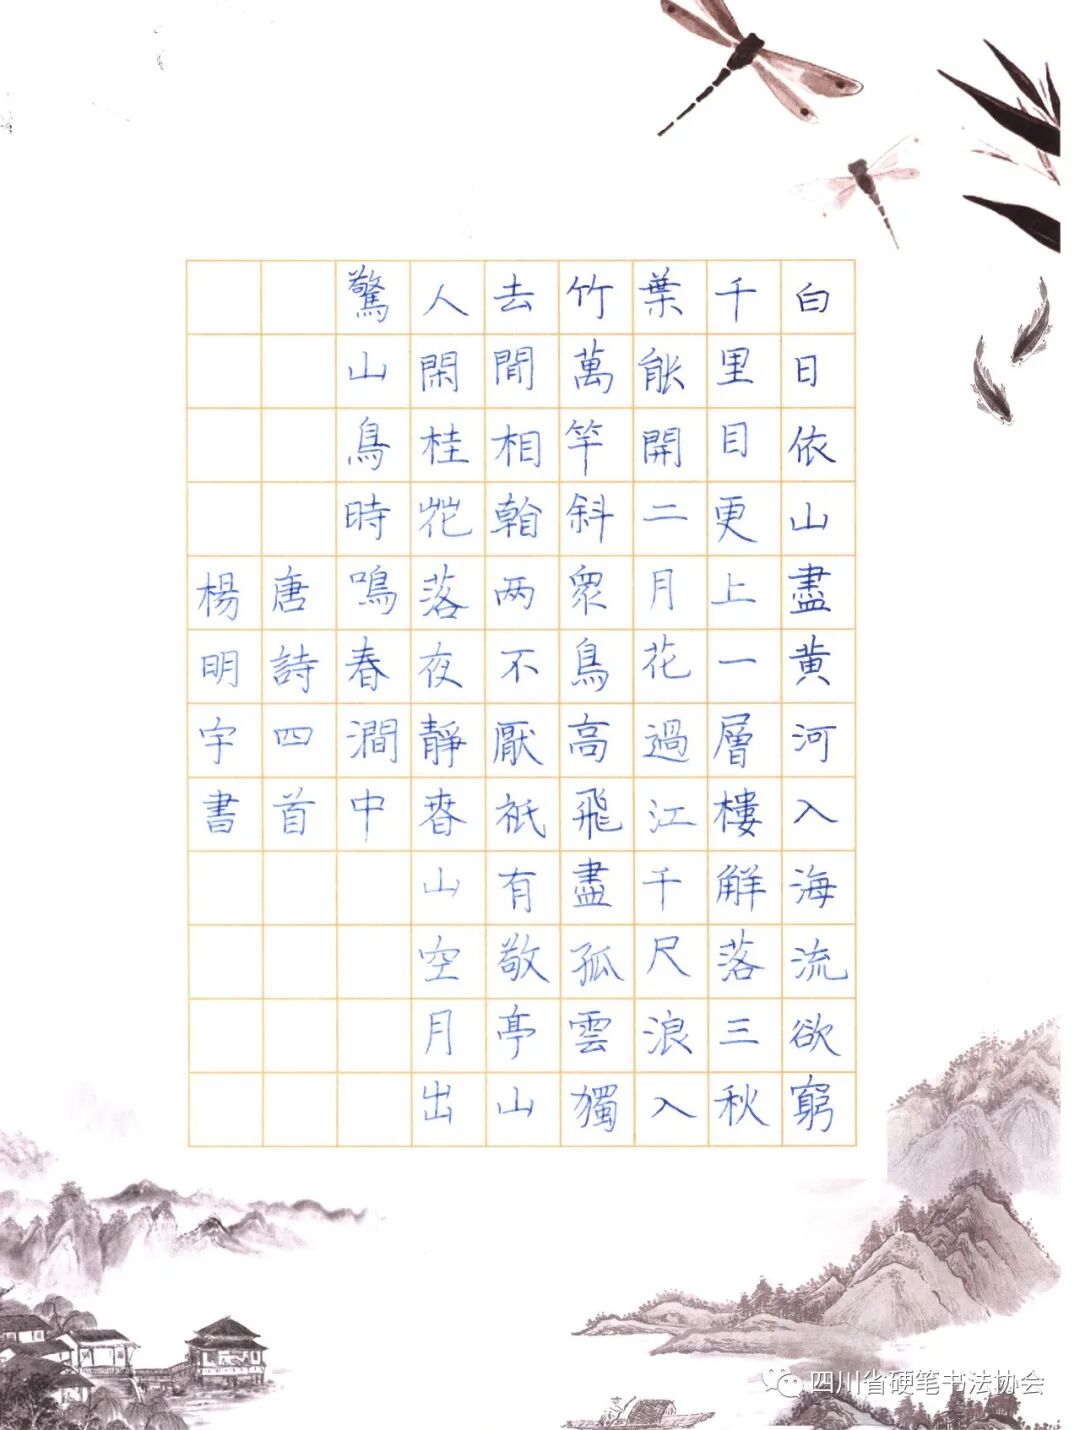 白日依山盡黄河入海流欲窮
千里目更上一層樓解落三秋
葉能開二月花過江千尺浪入
竹萬竿斜衆鳥高飛盡孤雲獨
去閒相看两不厭祇有敬亭山
人閑桂花落夜靜春山空月出
驚山鳥時鳴春澗中
唐詩四首
楊明宇書
四川省硬笔书法协会